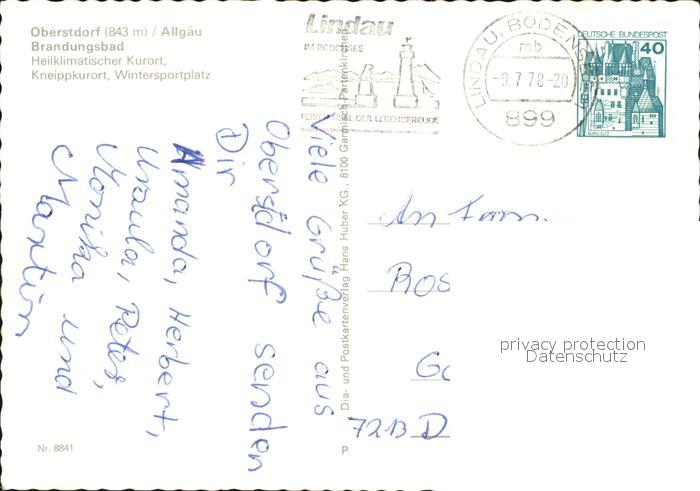 Oberstdorf (843 m) / Allgäu
Brandungsbad
Heilklimatischer Kurort,
Kneippkurort, Wintersportplatz
Lindau
IM BODENSEE
FERIENINSEL DER LEBENSFREUDE
LINDAU, BODENSEE
mb
-9.7.78-20
899
DEUTSCHE BUNDESPOST
40
BURG ELTZ
Viele Grüße aus
Oberstdorf senden
Dir
Amanda, Herbert,
Ursula, Peter,
Monika und
Martin
Dia- und Postkartenverlag Hans Huber KG., 8100 Garmisch-Partenkirchen
An Fam.
Ros
G
7213 D
privacy protection
Datenschutz
Nr. 8841
P